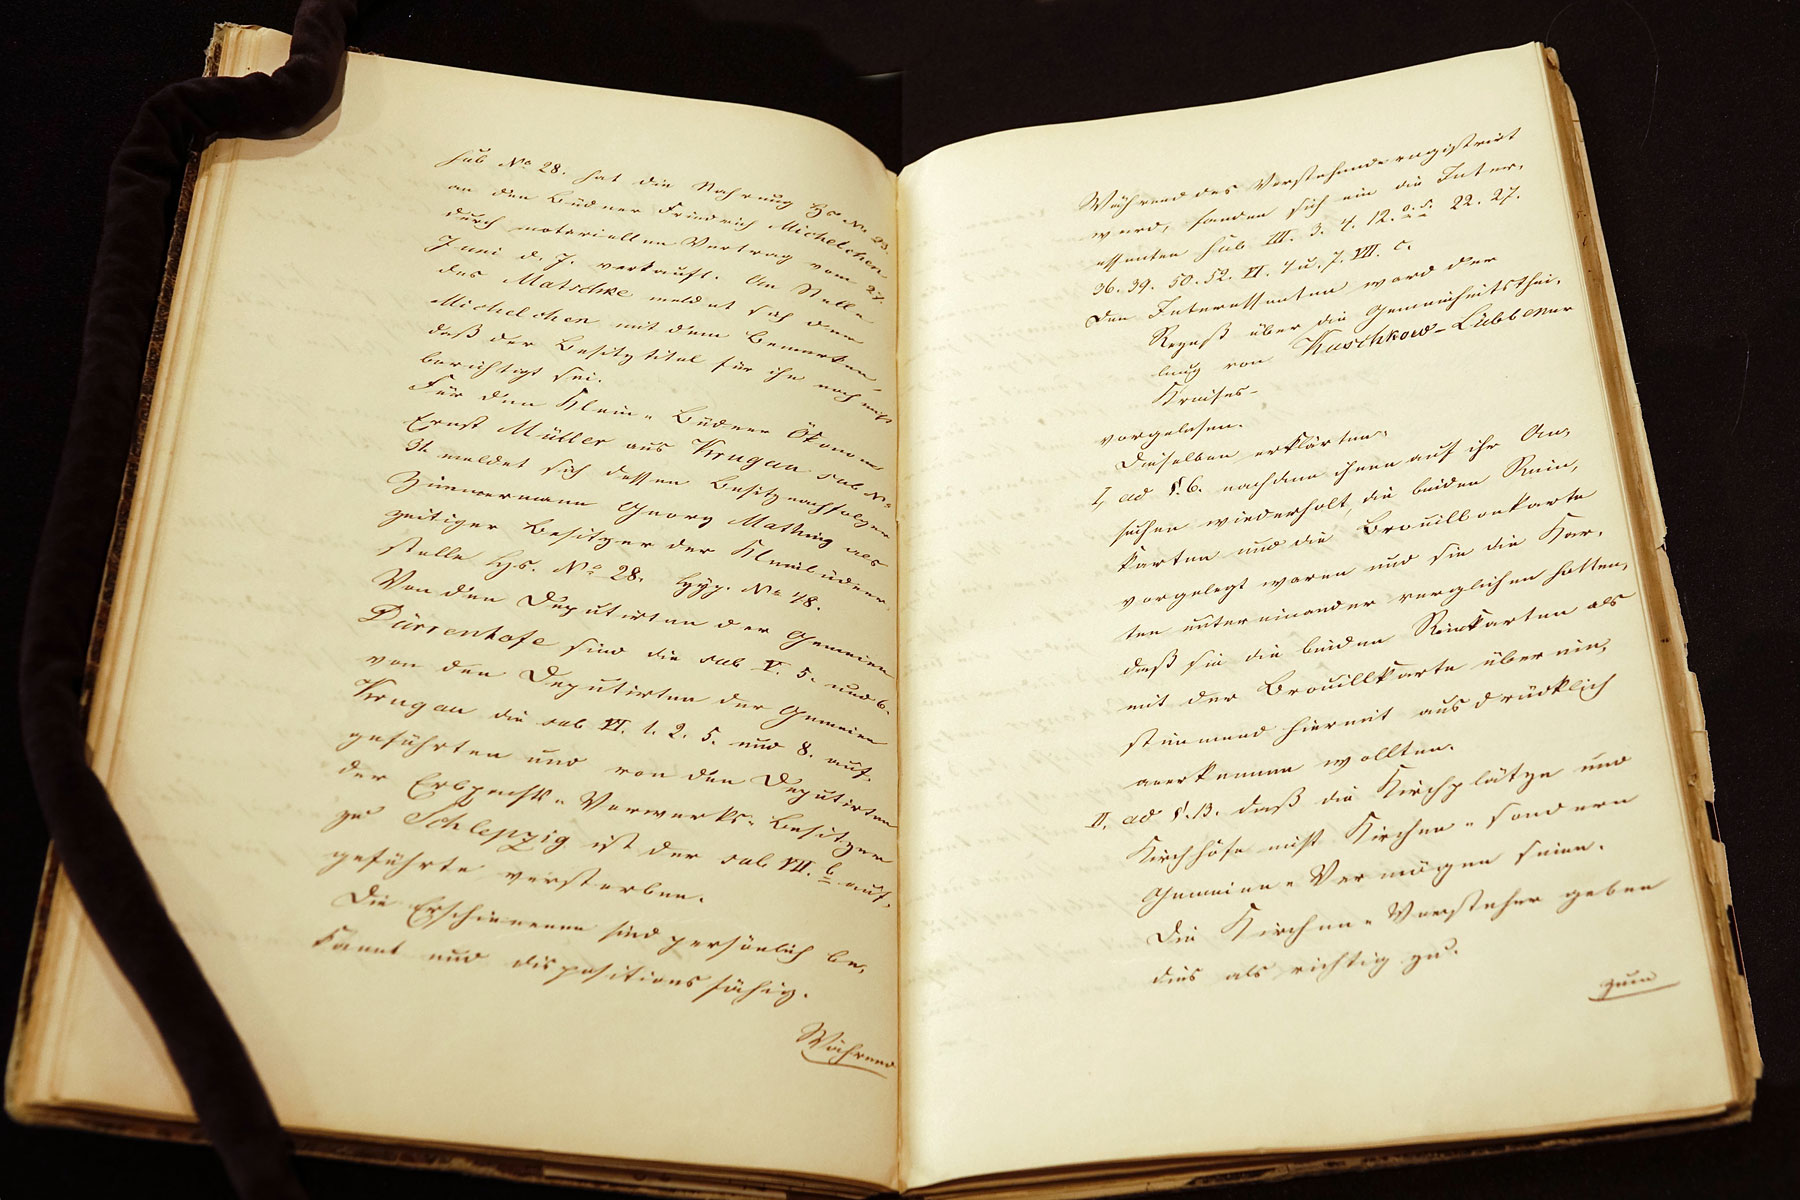 sub No 28. hat die Nahrung Hs No 23.
an den Büdner Friedrich Michelchen
durch notariellen Vertrag vom 27.
Juni d. J. verkauft. An Stelle
des Matschke meldet sich der
Michelchen mit dem Bemerken,
daß der Besitztitel für ihn noch nicht
berichtigt sei.
Für den Klein-Büdner Ökonom
Ernst Müller aus Krugau sub No
31. meldet sich dessen Besitznachfolger
Zimmermann Georg Mathing als
zeitiger Besitzer der Kleinbüdner-
stelle Hs. No 28. Hyp. No 48.
Von den Deputirten der Gemeine
Dürrenhofe sind die sub V. 5. und 6.
von den Deputirten der Gemeine
Krugau die sub VI. 1. 2. 5. und 8. auf-
geführten und von den Deputirten
der Erbpachts-Vorwerks-Besitzer
zu Schlepzig ist der sub VII. b auf-
geführte verstorben.
Die Erschienenen sind persönlich be-
kannt und dispositionsfähig.
Während
Während des Vorstehende registrirt
ward, fanden sich ein die Inter-
essenten sub III. 3. 4. 12. 22. 27.
36. 39. 50. 52. VI. 4 u. 7. VII. c.
Den Interessenten ward der
Rezeß über die Gemeinheitsthei-
lung von Kuschkow-Lübbener
Kreises-
vorgelesen.
Dieselben erklärten:
I, ad §. 6. nachdem ihnen auf ihr An-
suchen wiederholt die beiden Rein-
karten und die Brouillonkarte
vorgelegt waren und sie die Kar-
ten untereinander verglichen hatten,
daß sie die beiden Reinkarten als
mit der Brouillkarte überein-
stimmend hiermit ausdrücklich
anerkennen wollten.
II. ad §. 13. daß die Kirchplätze und
Kirchhöfe nicht Kirchen- sondern
Gemeine-Vermögen seien.
Die Kirchen-Vorsteher geben
dies als richtig zu.
zum